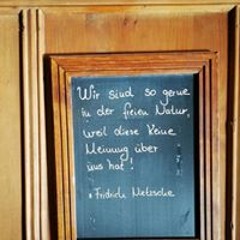 Wir sind so gerne
in der freien Natur,
weil diese keine
Meinung über
uns hat!
Fridrich Nietzsche